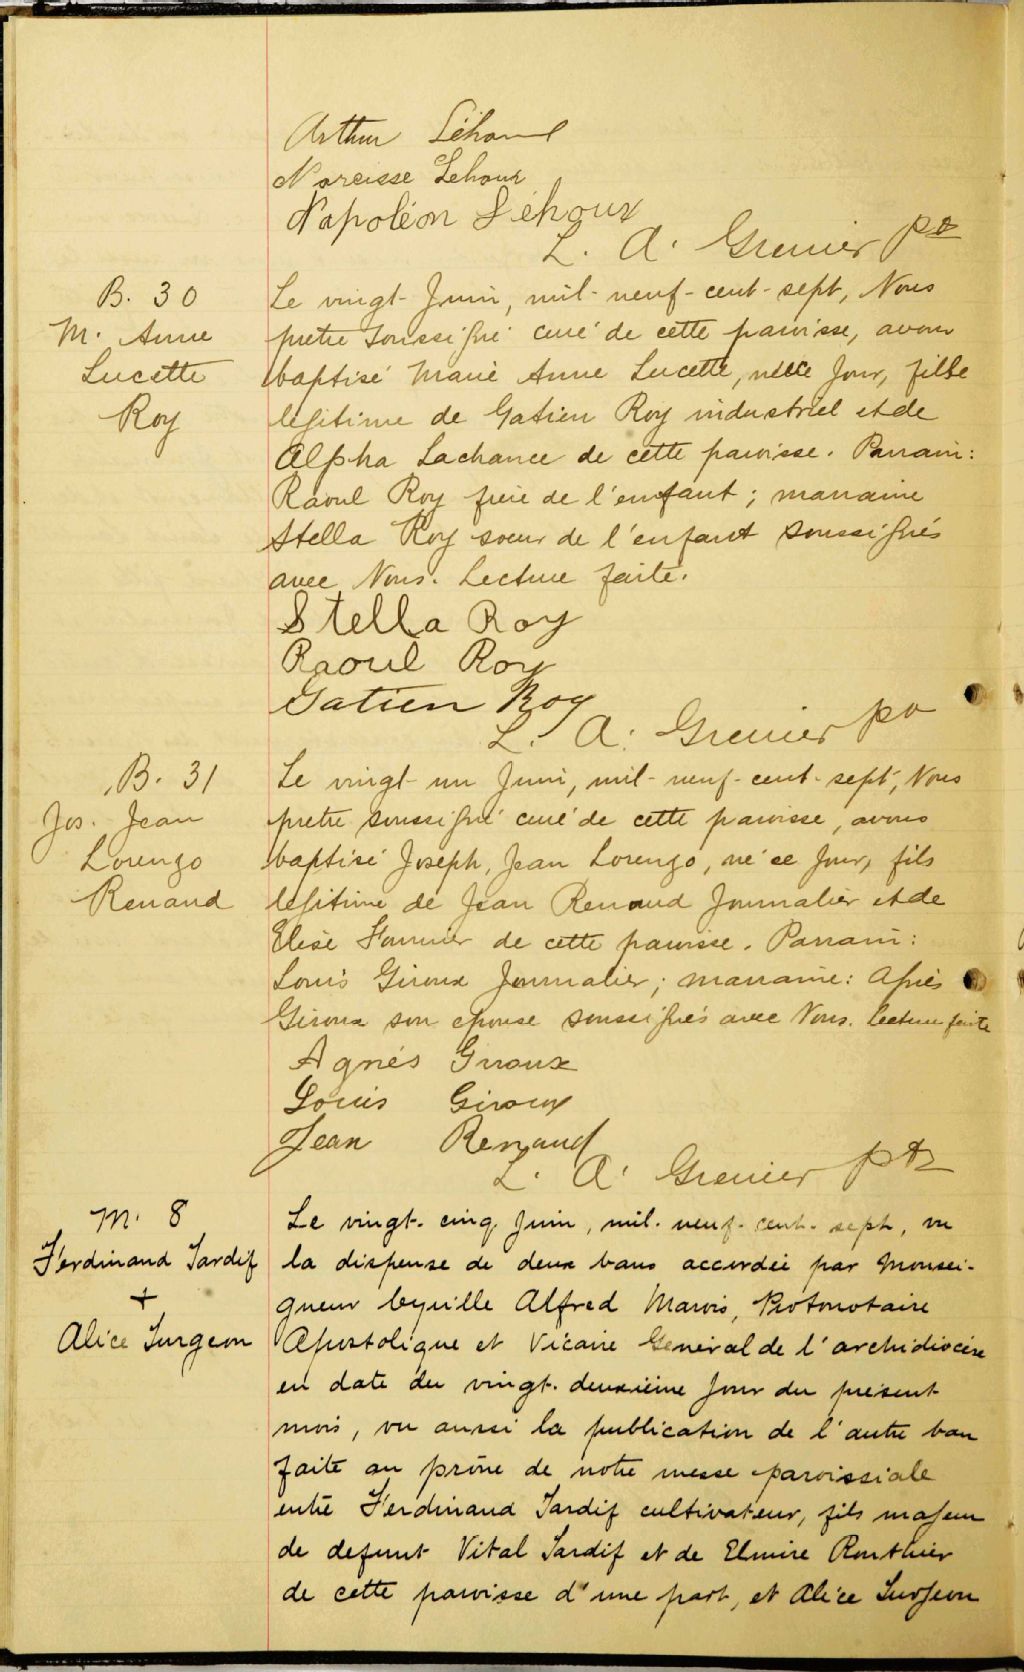 Arthur Léhoux
Narcisse Lehoux
Napoléon Léhoux
L. A. Grenier ptr
B. 30
M. Anne
Lucette
Roy
Le vingt Juin, mil-neuf-cent-sept, Nous
pretre soussigné curé de cette paroisse, avons
baptisé Marie Anne Lucette, née ce jour, fille
legitime de Gatien Roy industriel et de
Alpha Lachance de cette paroisse. Parrain:
Raoul Roy frère de l'enfant; marraine
Stella Roy soeur de l'enfant soussignés
avec Nous. Lecture faite.
Stella Roy
Raoul Roy
Gatien Roy
L. A. Grenier ptr
B. 31
Jos. Jean
Lorenzo
Renaud
Le vingt-un Juin, mil-neuf-cent-sept, Nous
pretre soussigné curé de cette paroisse, avons
baptisé Joseph, Jean Lorenzo, né ce jour, fils
legitime de Jean Renaud Journalier et de
Elise Fournier de cette paroisse. Parrain:
Louis Giroux Journalier; marraine: Agnès
Giroux son epouse soussignés avec Nous. Lecture faite
Agnés Giroux
Louis Giroux
Jean Renaud
L. A. Grenier ptr
M. 8
Ferdinand Tardif
+
Alice Turgeon
Le vingt-cinq Juin, mil-neuf-cent-sept, vu
la dispense de deux bans accordée par Monsei-
gneur Cyrille Alfred Marois, Protonotaire
Apostolique et Vicaire Général de l'archidiocèse
en date du vingt-deuxième jour du présent
mois, vu aussi la publication de l'autre ban
faite au prône de notre messe paroissiale
entre Ferdinand Tardif cultivateur, fils majeur
de defunt Vital Tardif et de Elmire Routhier
de cette paroisse d'une part, et Alice Turgeon